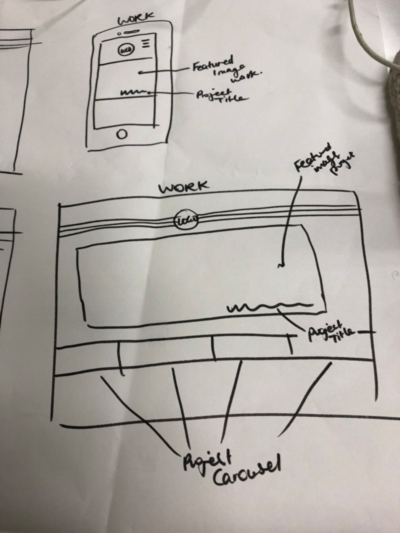 WORK
LOGO
Featured
Image
work.
Project
Title
WORK
Featured
image
LOGO
Project
Title
Project
Carousel